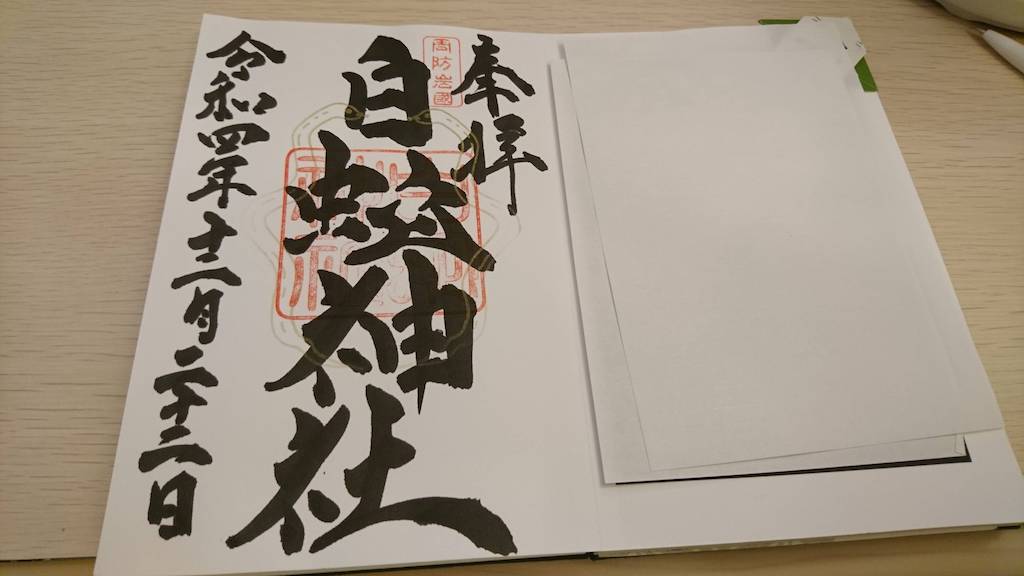 奉拝
周防岩國
白蛇神社
令和四年十二月二十二日